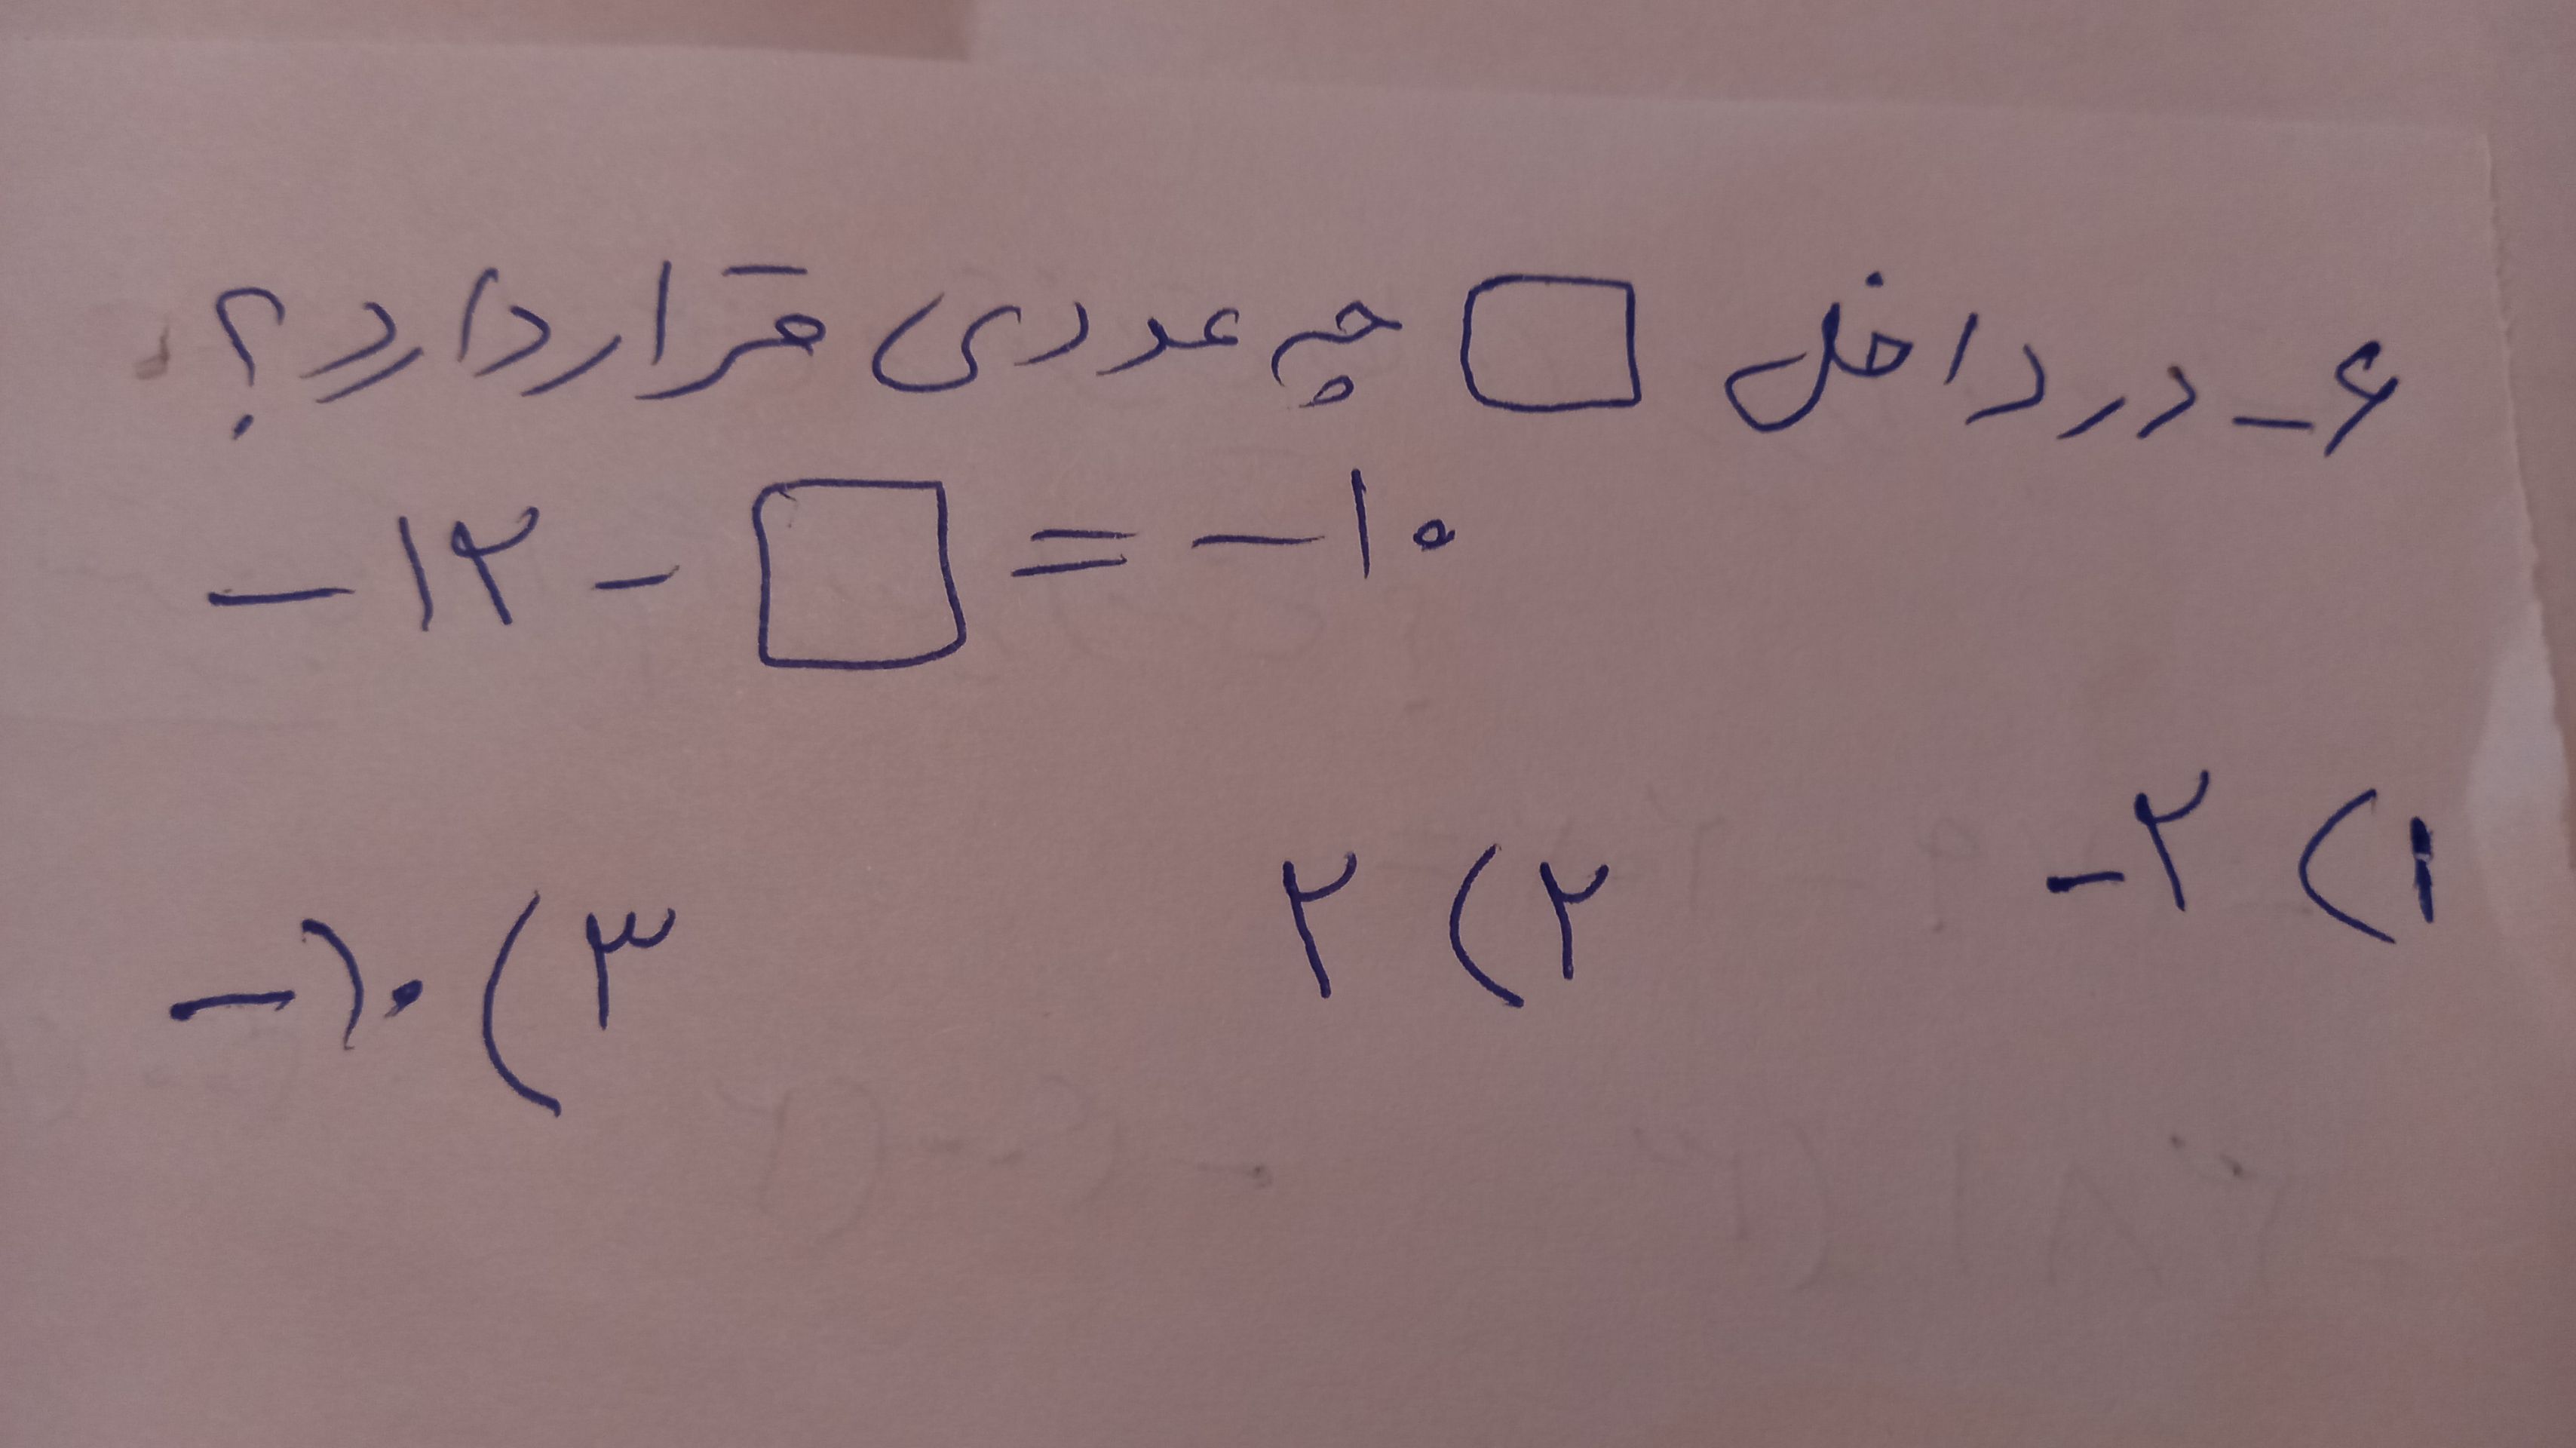 ۶- در داخل □ چه عددی قرار دارد؟
-۱۲ - □ = -۱۰
۱) -۲
۲) ۲
۳) -۱۰